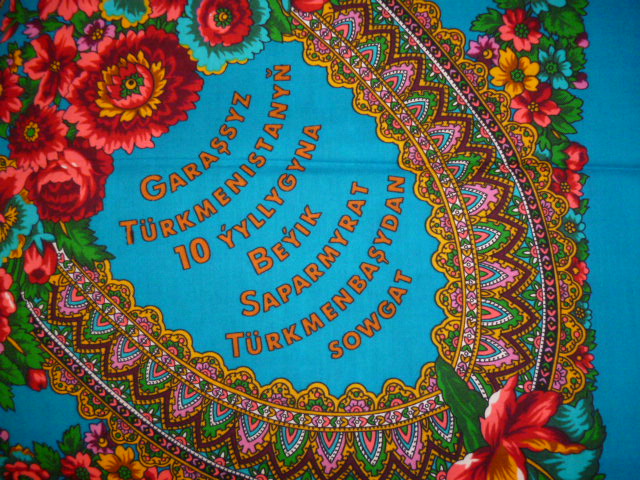 GARAŞSYZ
TÜRKMENISTANYŇ
10 ÝYLLYGYNA
BEÝIK
SAPARMYRAT
TÜRKMENBAŞYDAN
SOWGAT